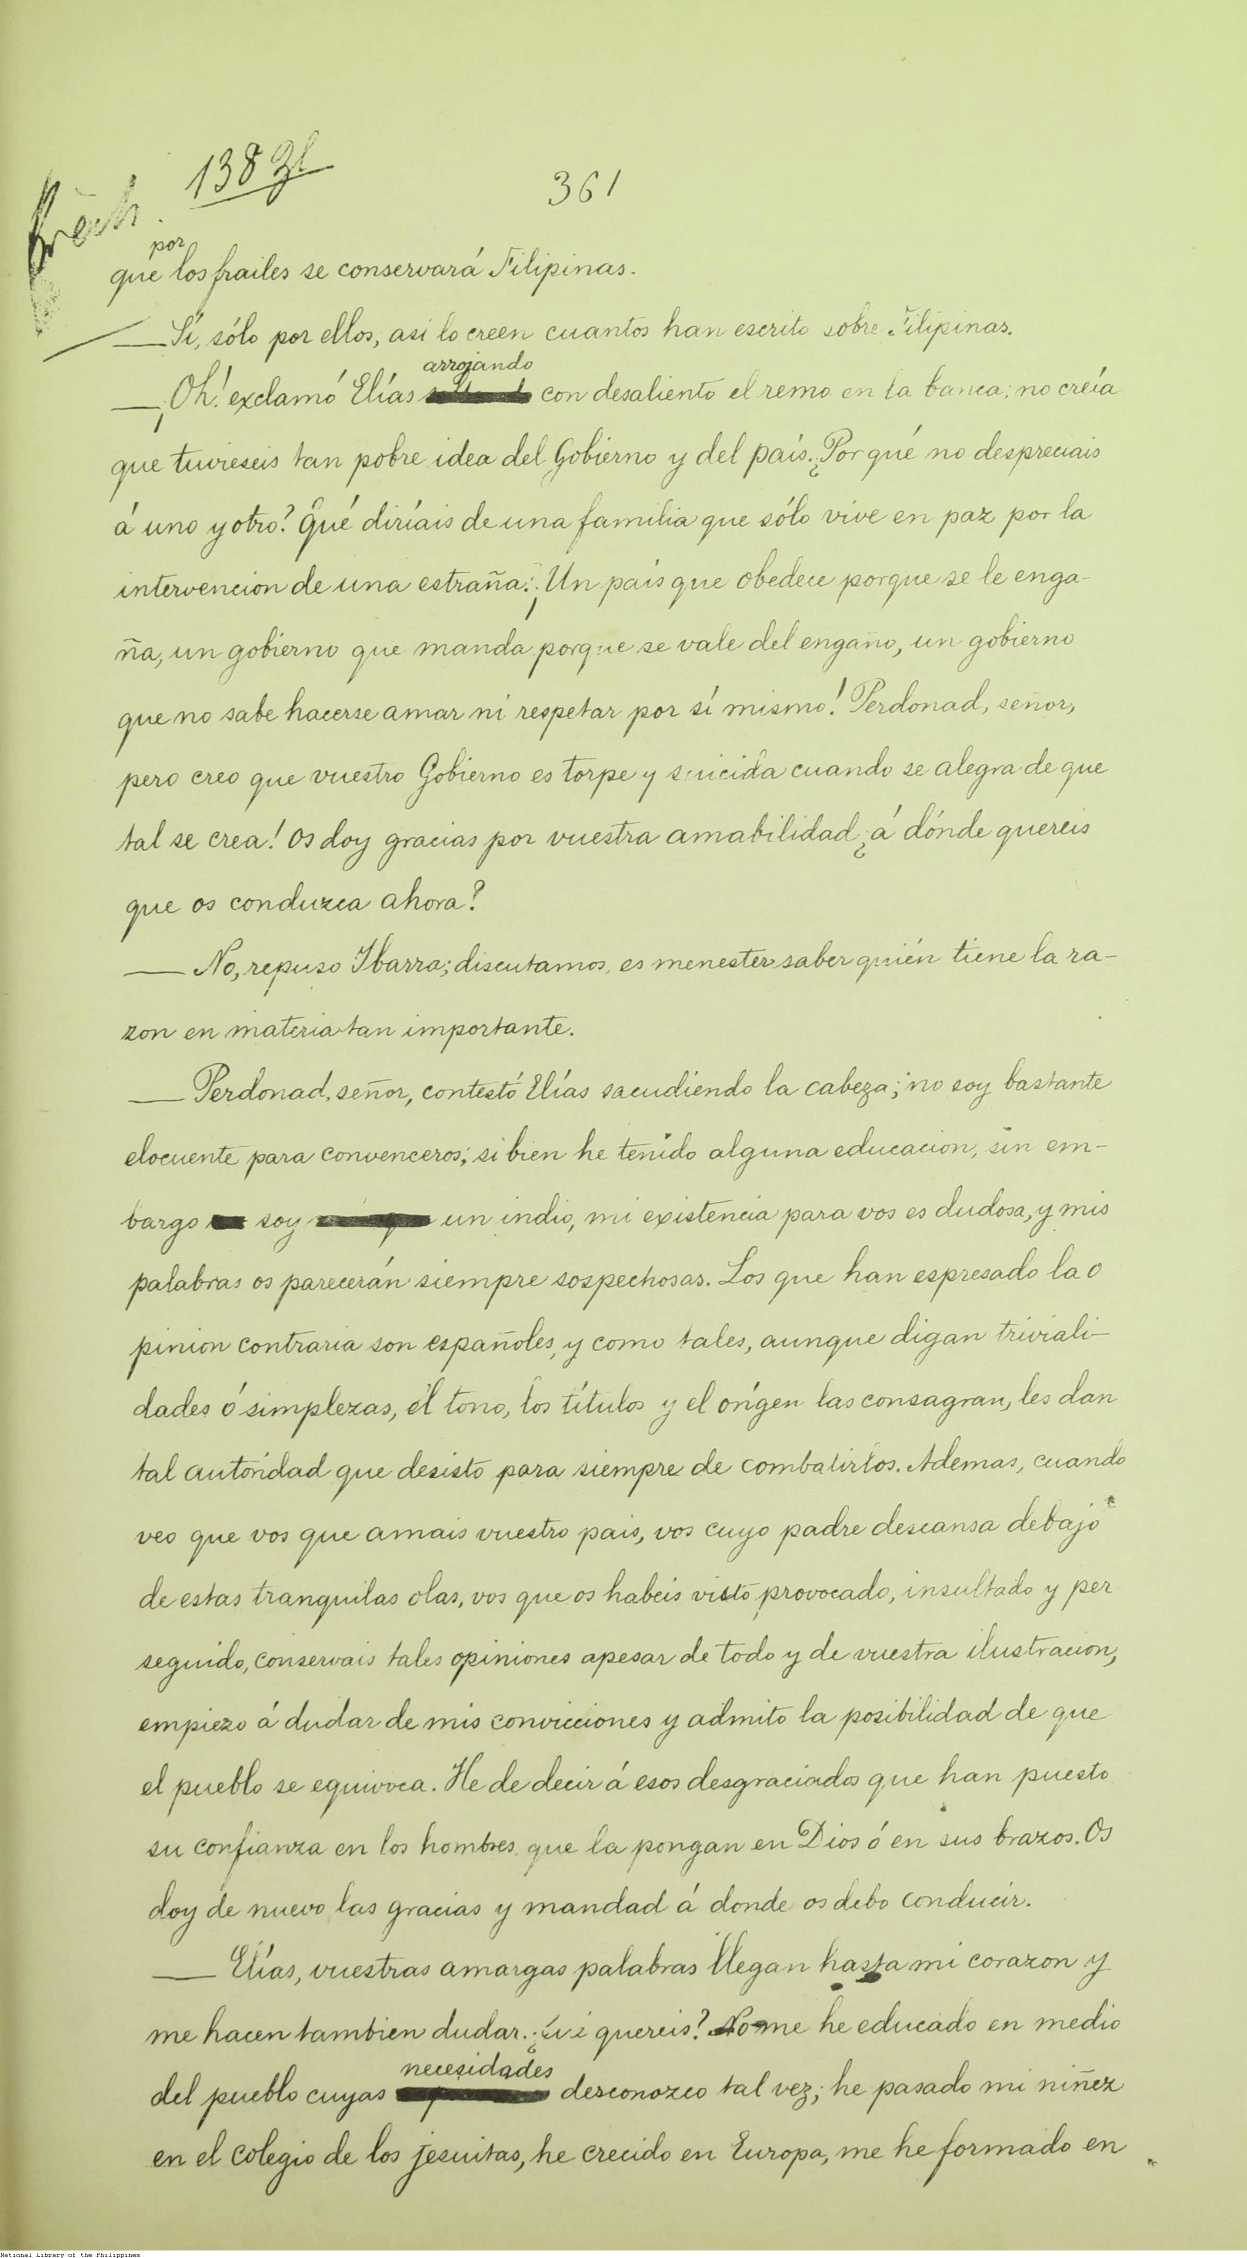 138 Zl
361
por
que los frailes se conservará Filipinas.
— Sí, sólo por ellos, asi lo creen cuantos han escrito sobre Filipinas.
arrojando
— ¡Oh! exclamó Elías con desaliento el remo en la banca; no creía
que tuvieseis tan pobre idea del Gobierno y del país. ¿Por qué no despreciais
á uno y otro? Qué diríais de una familia que sólo vive en paz por la
intervencion de una estraña: ¡Un país que obedece porque se le enga-
ña, un gobierno que manda porque se vale del engaño, un gobierno
que no sabe hacerse amar ni respetar por sí mismo! Perdonad, señor,
pero creo que vuestro Gobierno es torpe y suicida cuando se alegra de que
tal se crea! Os doy gracias por vuestra amabilidad ¿á dónde quereis
que os conduzca ahora?
— No, repuso Ibarra; discutamos, es menester saber quién tiene la ra-
zon en materia tan importante.
— Perdonad, señor, contestó Elías sacudiendo la cabeza; no soy bastante
elocuente para convenceros; si bien he tenido alguna educacion, sin em-
bargo soy un indio, mi existencia para vos es dudosa, y mis
palabras os parecerán siempre sospechosas. Los que han espresado la o
pinion contraria son españoles, y como tales, aunque digan triviali-
dades ó simplezas, el tono, los títulos y el orígen las consagran, les dan
tal autoridad que desisto para siempre de combatirlos. Ademas, cuando
veo que vos que amais vuestro pais, vos cuyo padre descansa debajo
de estas tranquilas olas, vos que os habeis visto provocado, insultado y per
seguido, conservais tales opiniones apesar de todo y de vuestra ilustracion,
empiezo á dudar de mis convicciones y admito la posibilidad de que
el pueblo se equivoca. He de decir á esos desgraciados que han puesto
su confianza en los hombres que la pongan en Dios ó en sus brazos. Os
doy de nuevo las gracias y mandad á donde os debo conducir.
— Elías, vuestras amargas palabras llegan hasta mi corazon y
me hacen tambien dudar. ¿Qué quereis? No me he educado en medio
necesidades
del pueblo cuyas desconozco tal vez; he pasado mi niñez
en el colegio de los jesuitas, he crecido en Europa, me he formado en
National Library of the Philippines